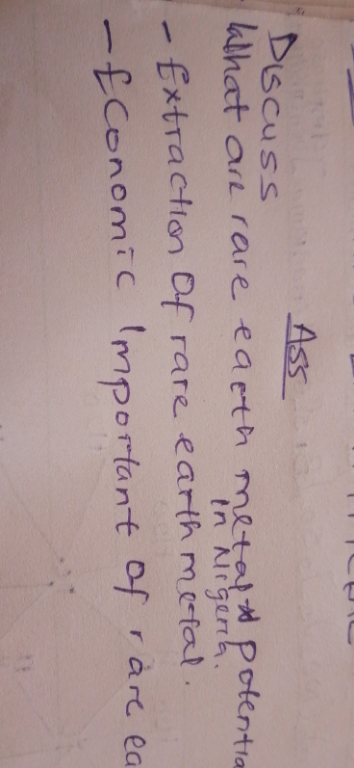 Ass
Discuss
What are rare earth metal & Potentia
in Nigeria.
- Extraction Of rare earth metal.
- Economic Important Of rare ea